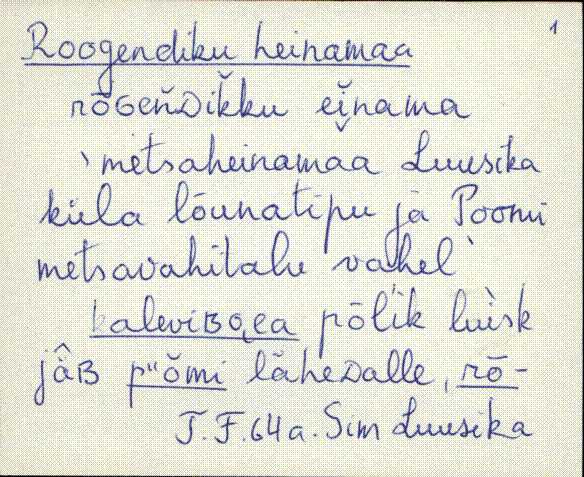 1
Roogendiku heinamaa
rōɢeňᴅiǩku eĭnama
‵metsaheinamaa Luusika
küla lõunatipu ja Poomi
metsavahitalu vahel‵
kaleviʙo̬ea põlìk luìsk
jä̂ʙ p"ŏmi läheᴅalle, rō-
J.F.64a. Sim Luusika